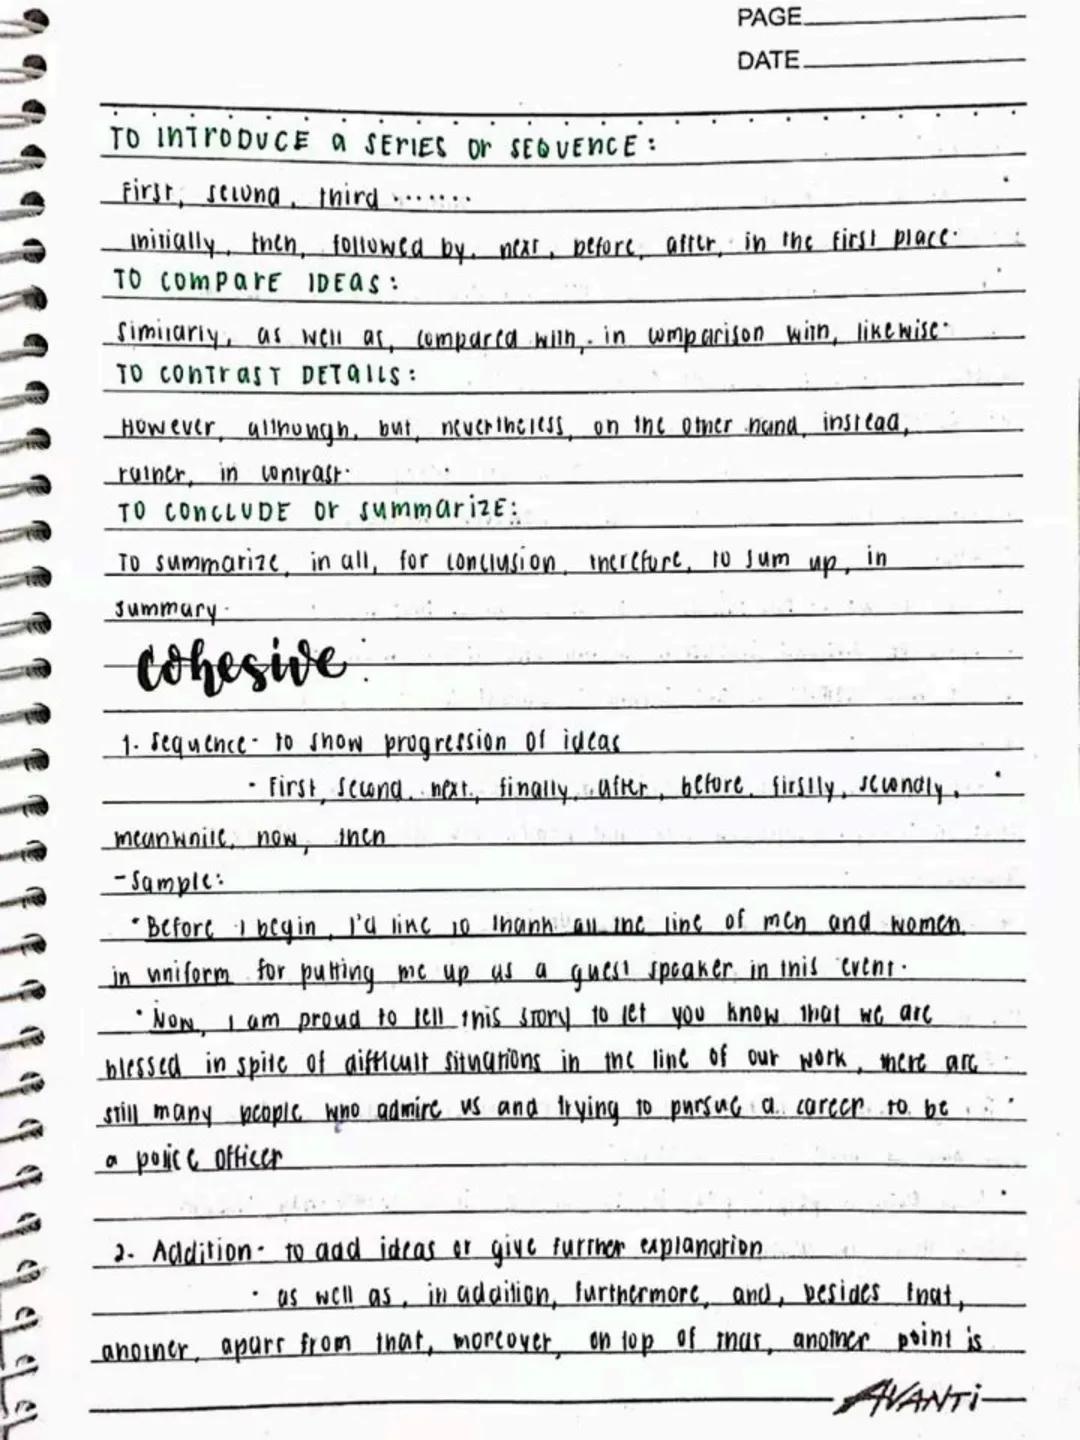 PAGE
DATE
TO INTRODUCE a SERIES or SEQUENCE:
First, second, third .......
initially, then, followed by, next, before, after, in the first place.
TO COMPARE IDEAS:
Similarly, as well as, compared with, in comparison with, likewise.
TO CONTRAST DETAILS:
However, although, but, nevertheless, on the other hand, instead,
rather, in contrast.
TO CONCLUDE Or summarIZE:
To summarize, in all, for conclusion, therefore, to sum up, in
summary.
cohesive:
1. Sequence - to show progression of ideas
- First, second, next, finally, after, before, firstly, secondly,
meanwhile, now, then
- Sample:
• Before I begin, I'd like to thank all the line of men and women
in uniform for putting me up as a guest speaker in this event.
• Now, I am proud to tell this story to let you know that we are
blessed in spite of difficult situations in the line of our work, there are
still many people who admire us and trying to pursue a career to be
a police officer
2. Addition - to add ideas or give further explanation
• as well as, in addition, furthermore, and, besides that,
another, apart from that, moreover, on top of that, another point is
AVANTi